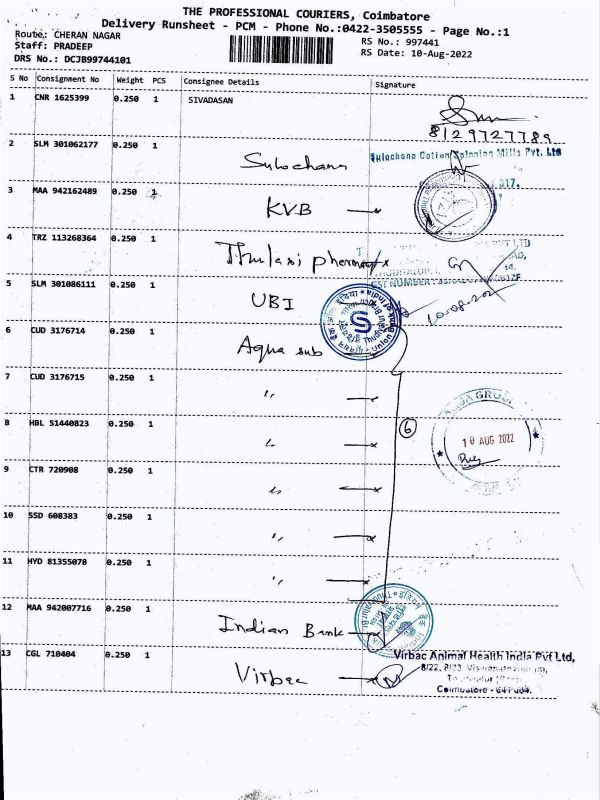 THE PROFESSIONAL COURIERS, Coimbatore
Delivery Runsheet - PCM - Phone No.:0422-3505555 - Page No.:1
Route: CHERAN NAGAR
Staff: PRADEEP
DRS No.: DCJB99744101
RS No.: 997441
RS Date: 10-Aug-2022
S No Consignment No Weight PCS Consignee Details Signature
1 CNR 1625399 0.250 1 SIVADASAN
8129727789
2 SLM 301062177 0.250 1 Sulochana
Sulochana Cotton Spinning Mills Pvt. Ltd
3 MAA 942162489 0.250 1 KVB
4 TRZ 113268364 0.250 1 Thulasi pharmacy
5 SLM 301086111 0.250 1 UBI
10-08-2022
6 CUD 3176714 0.250 1 Aqua sub
7 CUD 3176715 0.250 1 "
8 HBL 51440823 0.250 1 "
6
10 AUG 2022
9 CTR 720908 0.250 1 "
10 SSD 608383 0.250 1 "
11 HYD 81355078 0.250 1 "
12 MAA 942007716 0.250 1 Indian Bank
13 CGL 710404 0.250 1 Virbac
Virbac Animal Health India Pvt Ltd,
Coimbatore - 641 034.